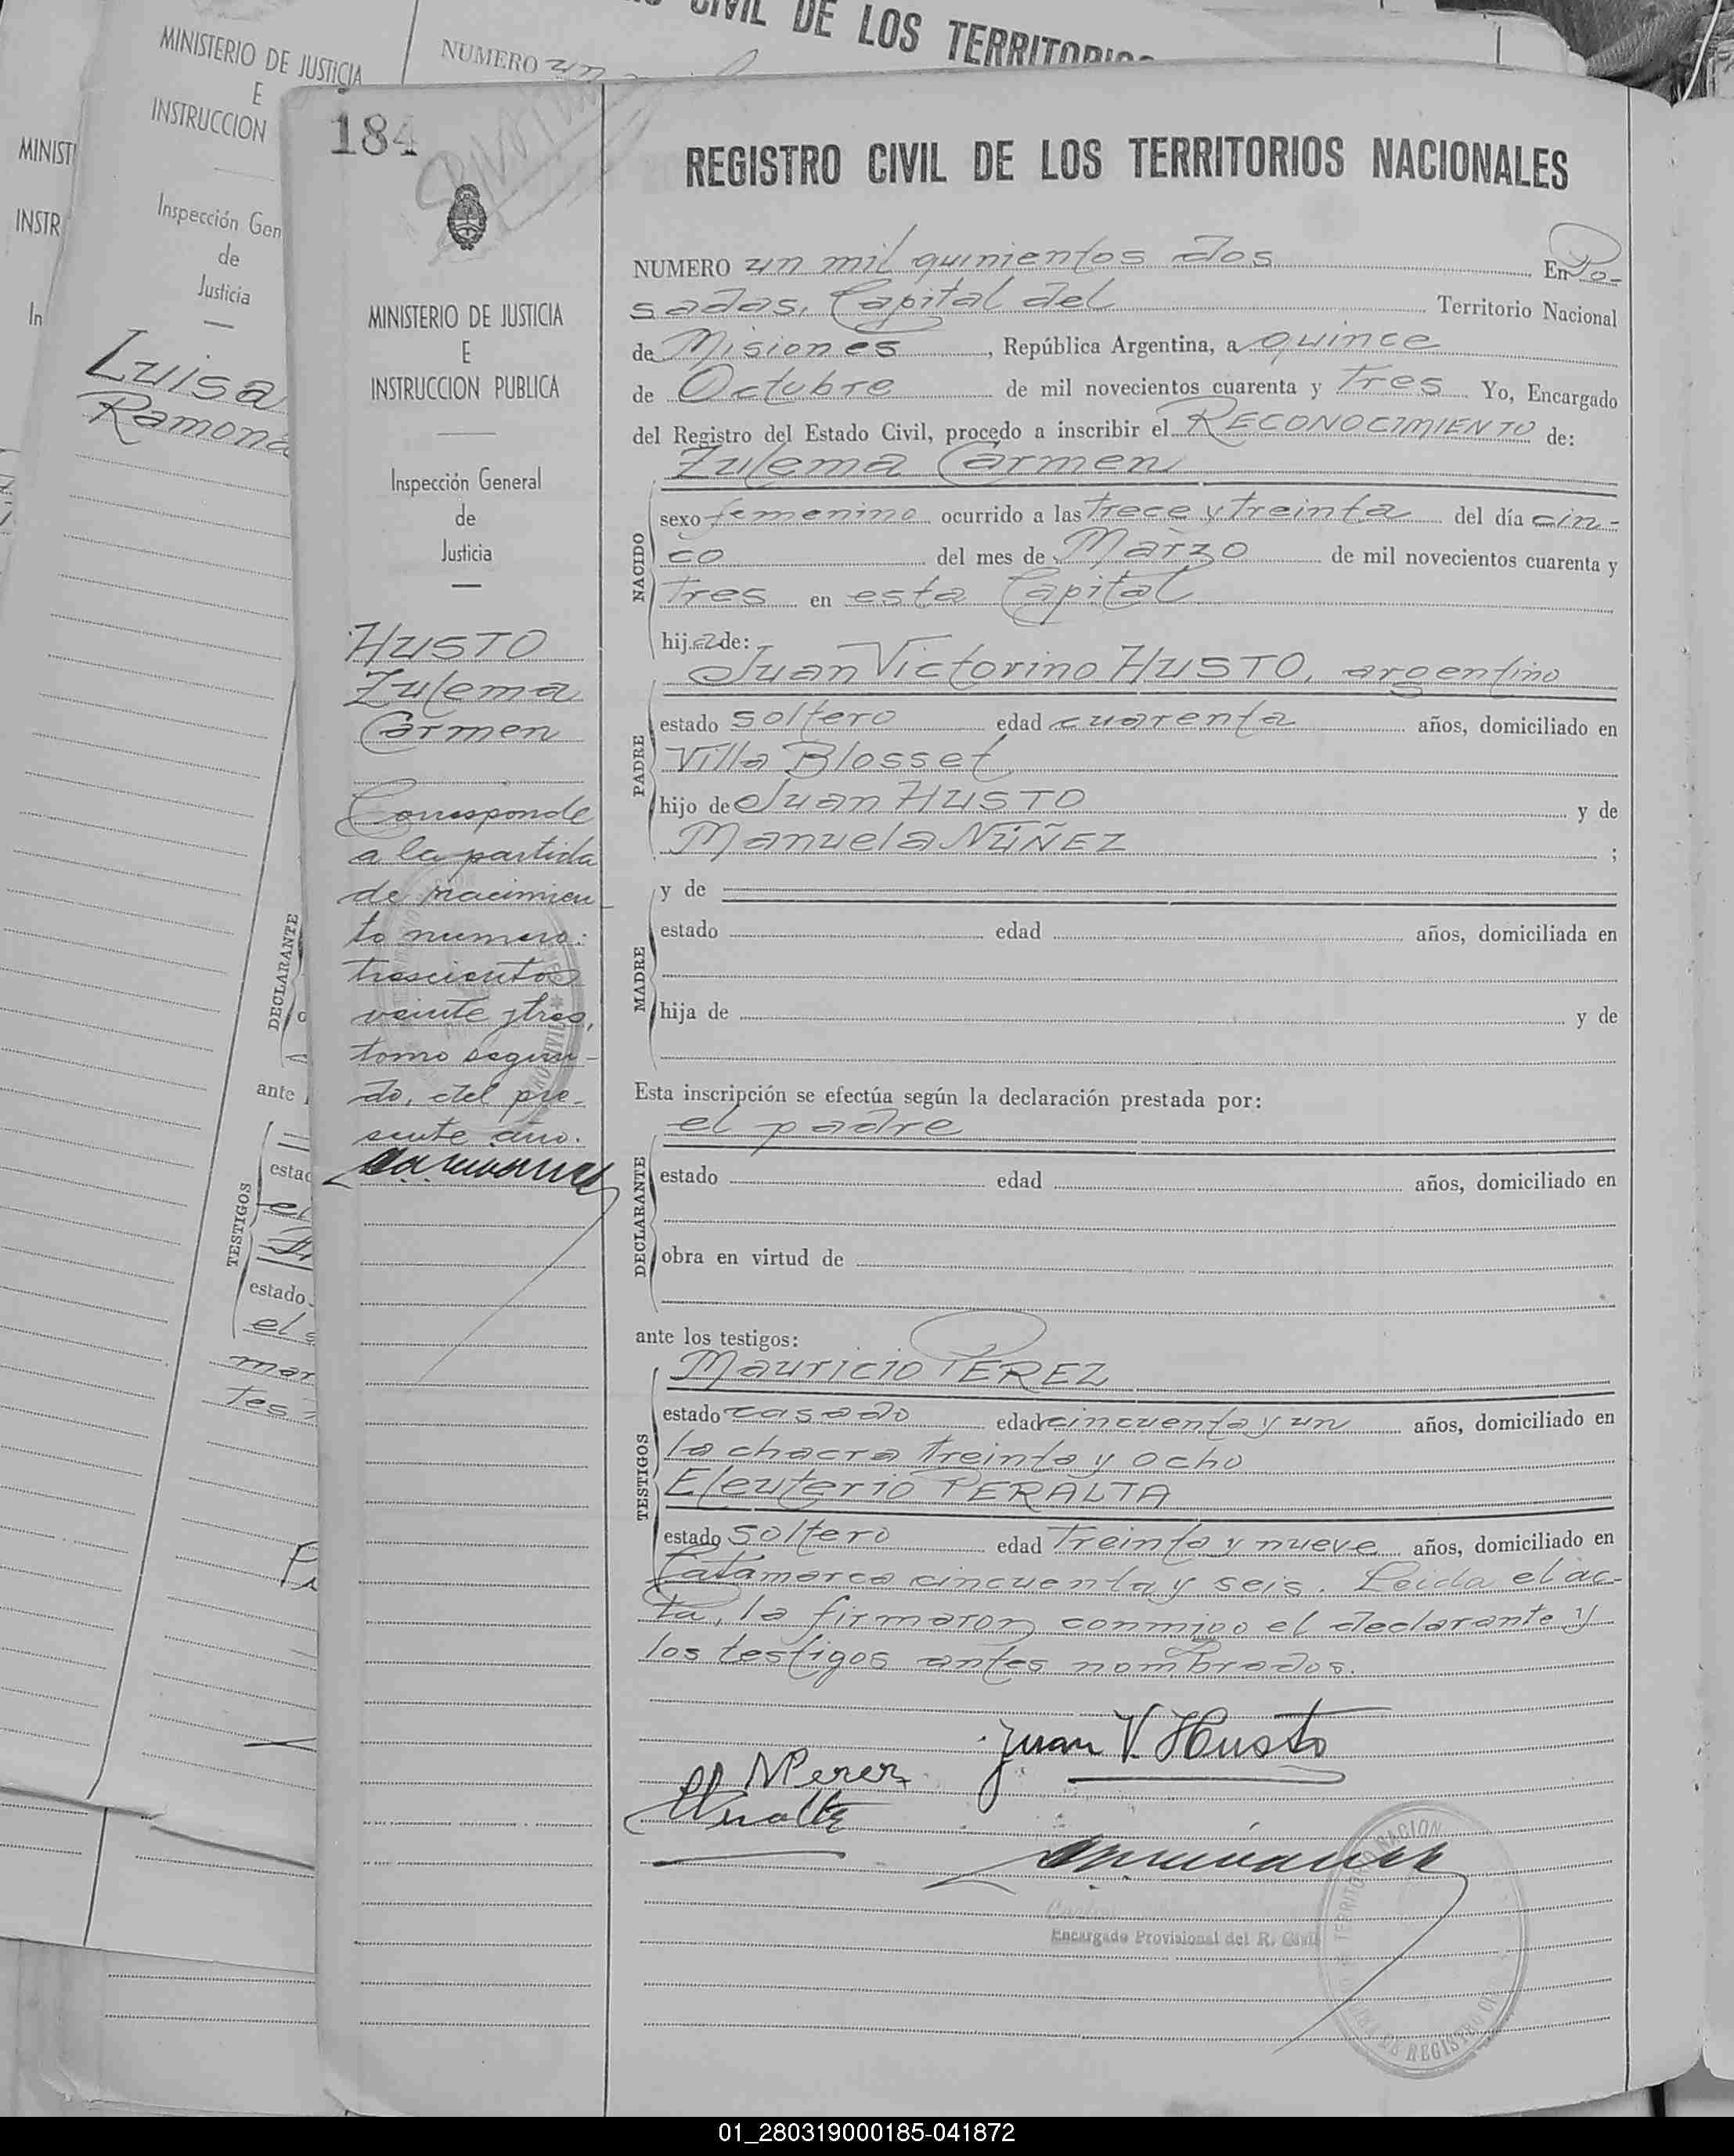 CIVIL DE LOS TERRITORIOS
MINISTERIO DE JUSTICIA
E
INSTRUCCION
Inspección Gen
de
Justicia
Luisa
Ramona
NUMERO un
MINIST
INSTR
In
DECLARANTE
ante
TESTIGOS
estad
el
estado
el
mar
tes
184
MINISTERIO DE JUSTICIA
E
INSTRUCCION PUBLICA
Inspección General
de
Justicia
HUSTO
Zulema
Carmen
Corresponde
a la partida
de nacimien-
to numero:
trescientos
veinte y tres,
tomo segun-
do, del pre-
sente año.
REGISTRO CIVIL DE LOS TERRITORIOS NACIONALES
NUMERO un mil quinientos dos En Po-
sadas, Capital del Territorio Nacional
de Misiones, República Argentina, a quince
de Octubre de mil novecientos cuarenta y tres Yo, Encargado
del Registro del Estado Civil, procedo a inscribir el RECONOCIMIENTO de:
Zulema Carmen
NACIDO
sexo femenino ocurrido a las trece y treinta del día cin-
co del mes de Marzo de mil novecientos cuarenta y
tres en esta Capital
hija de:
Juan Victorino HUSTO, argentino
PADRE
estado soltero edad cuarenta años, domiciliado en
Villa Blosset
hijo de Juan HUSTO y de
Manuela NÚÑEZ ;
y de
MADRE
estado edad años, domiciliada en
hija de y de
Esta inscripción se efectúa según la declaración prestada por:
el padre
DECLARANTE
estado edad años, domiciliado en
obra en virtud de
ante los testigos:
Mauricio PEREZ
TESTIGOS
estado casado edad cincuenta y un años, domiciliado en
la chacra treinta y ocho
Eleuterio PERALTA
estado soltero edad treinta y nueve años, domiciliado en
Catamarca cincuenta y seis. Leida el ac-
ta, la firmaron conmigo el declarante y
los testigos antes nombrados.
Juan V. Husto
MPerez
Encargado Provisional del R. Civil
01_280319000185-041872